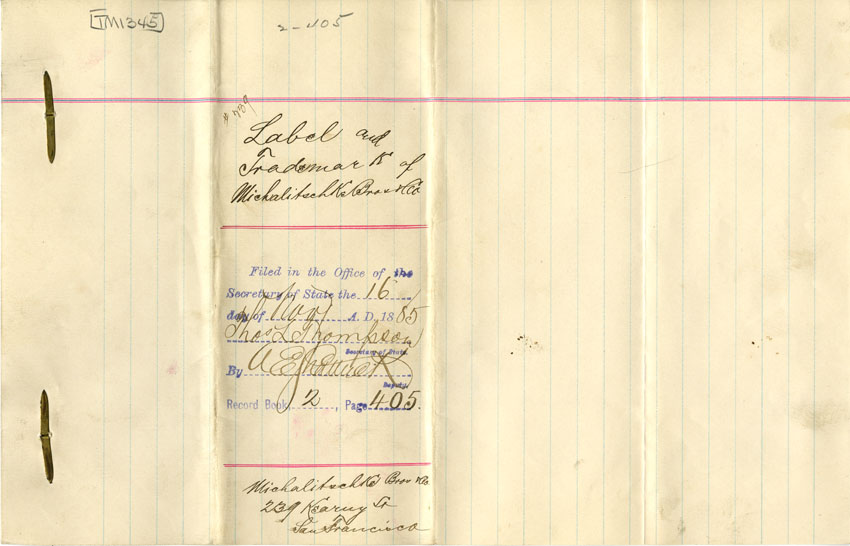 TM1345
2-405
# 789
Label and
Trademark of
Michalitschke Bros & Co
Filed in the Office of the
Secretary of State the 16
day of Nov A. D. 1885
Thos L. Thompson
Secretary of State.
By
Deputy.
Record Book 2, Page 405.
Michalitschke Bros & Co
239 Kearny St
San Francisco